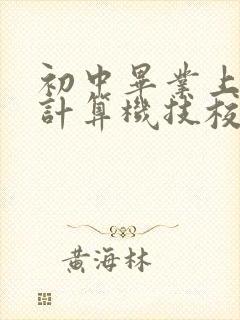 初中畢業上
計算機技校
黃海林